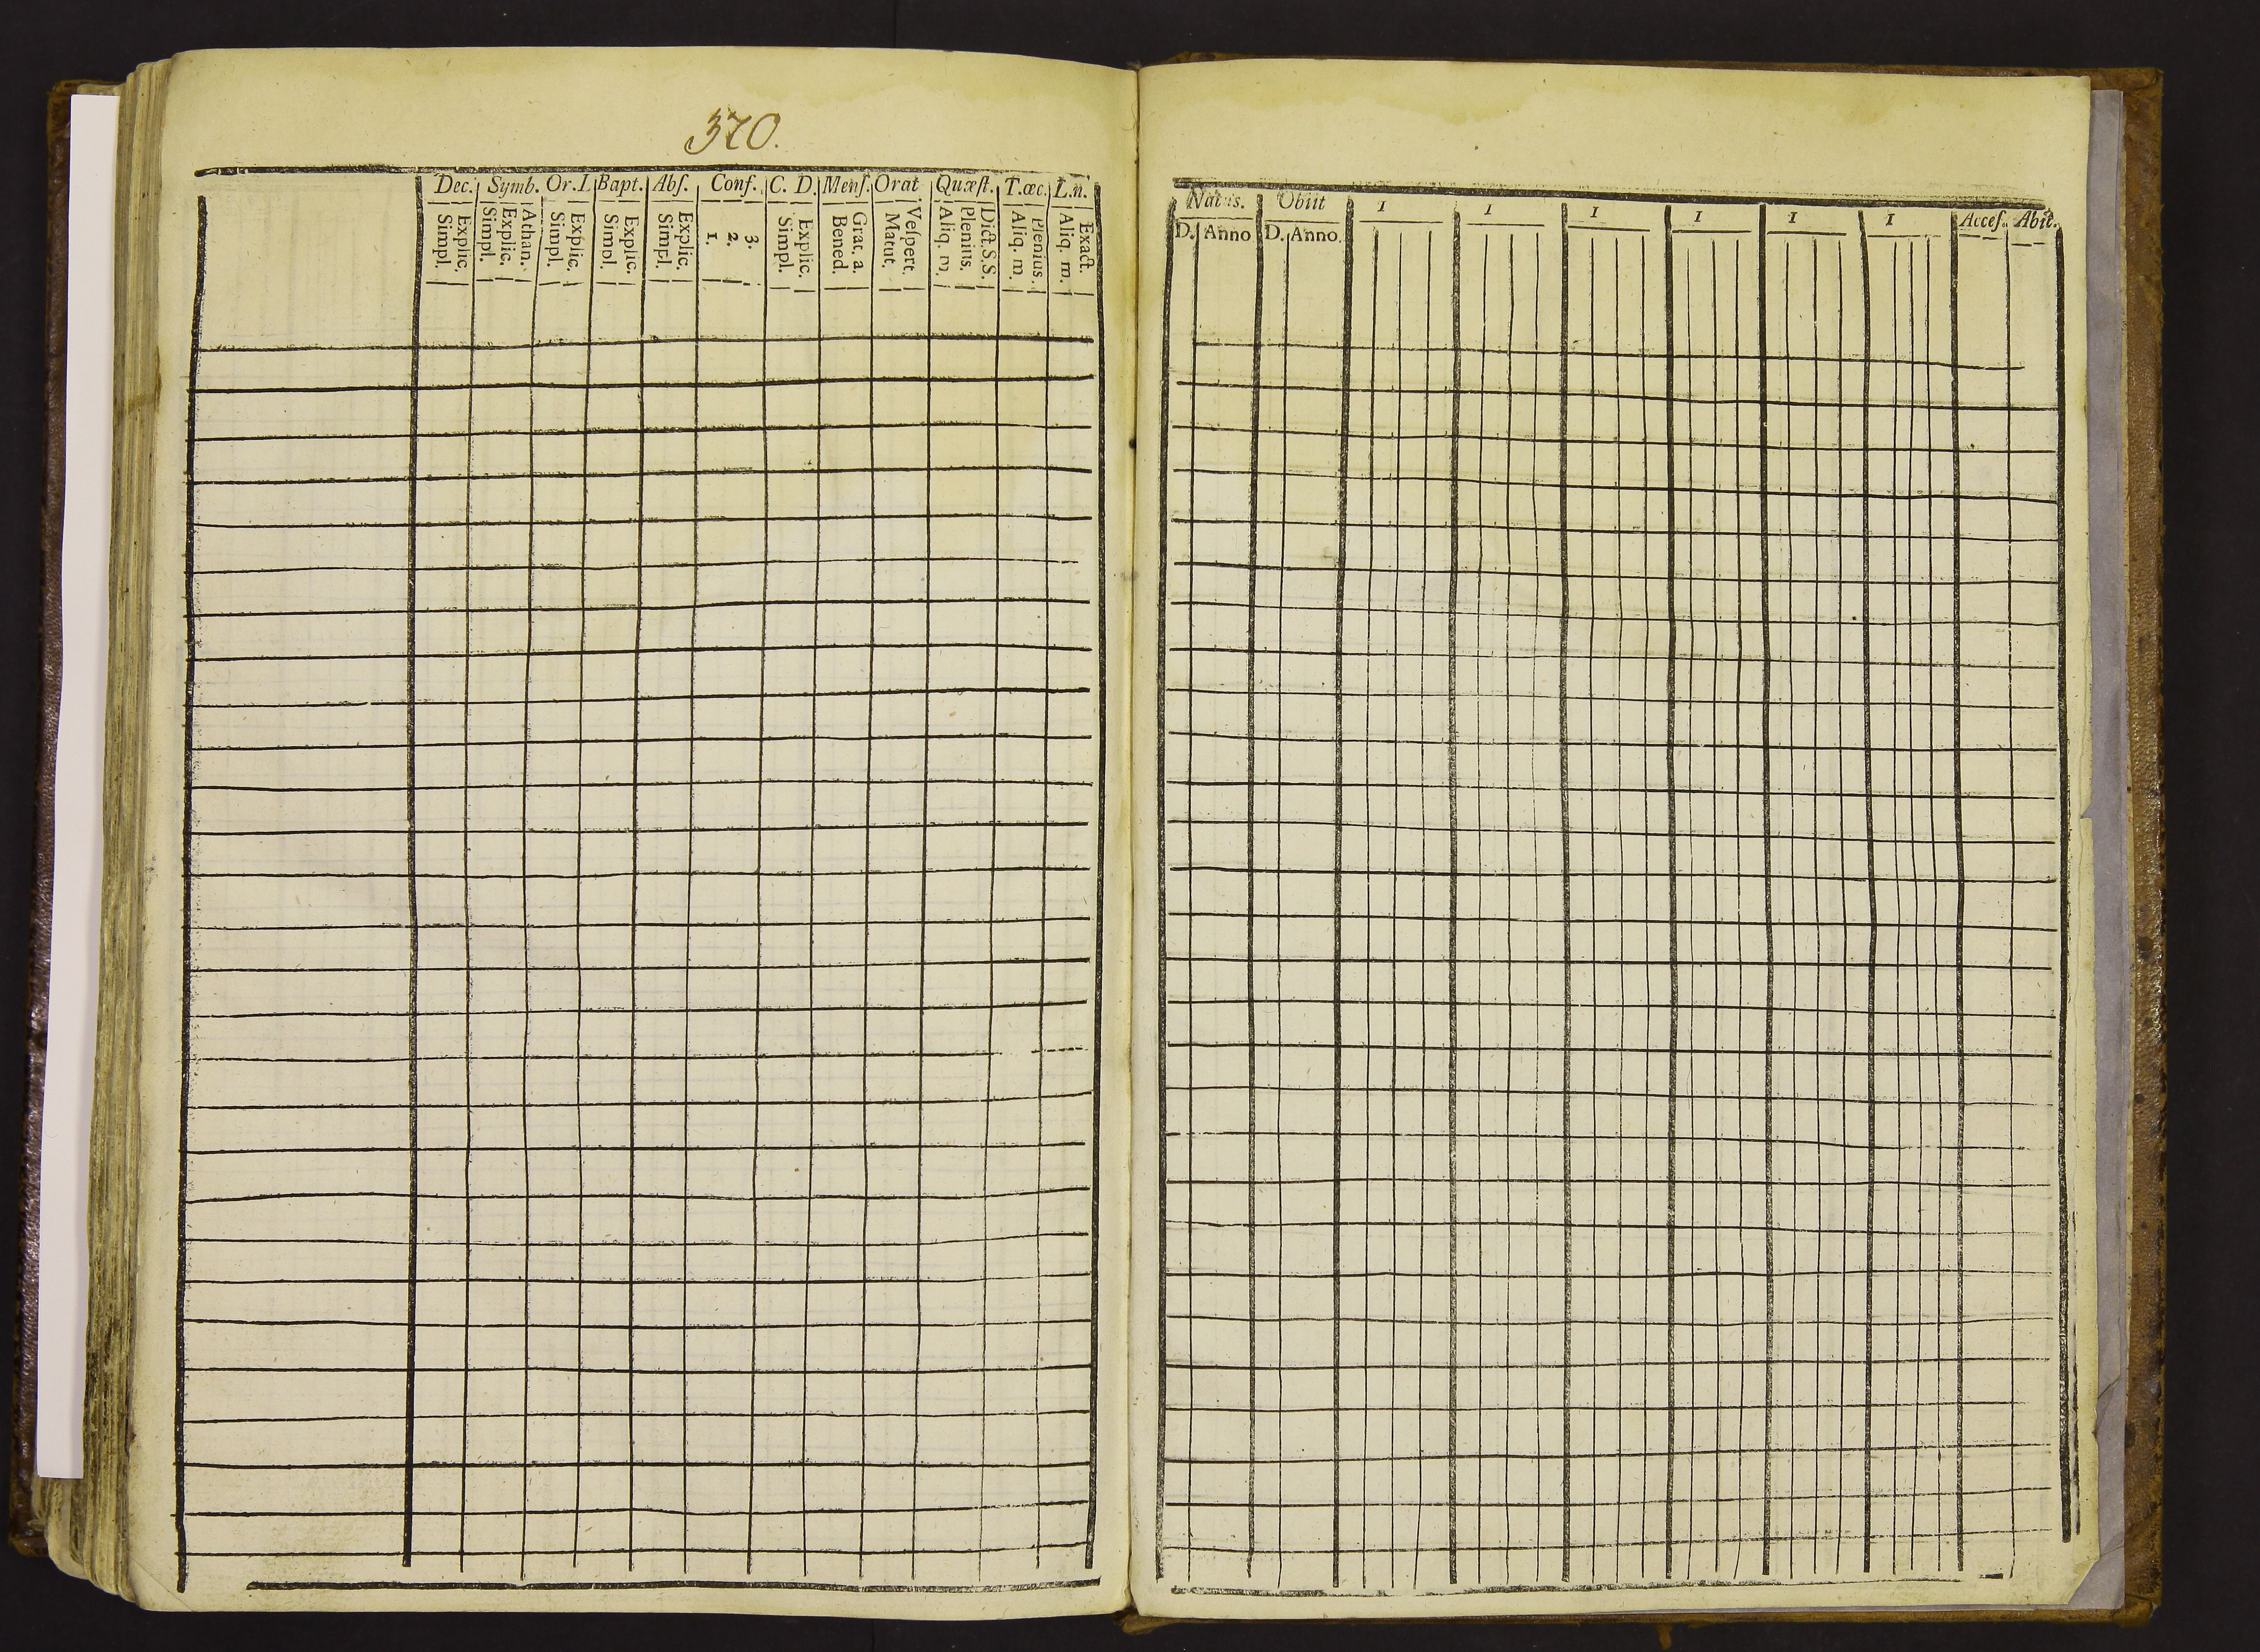 370.
Dec. Symb. Or. I. Bapt. Abſ. Conf. C. D. Menſ. Orat Quæſt. T. œc. L. n.
Simpl. Explic. Simpl. Explic. Athan. Simpl. Explic. Simpl. Explic. Simpl. Explic. 1. 2. 3. Simpl. Explic. Bened. Grat. a. Matut. Veſpert. Aliq. m. Plenius. Dict. S.S. Aliq. m. Plenius. Aliq. m. Exact.
Natus. Obiit 1 1 1 1 1 1 Acceſ. Abit.
D. Anno D. Anno.